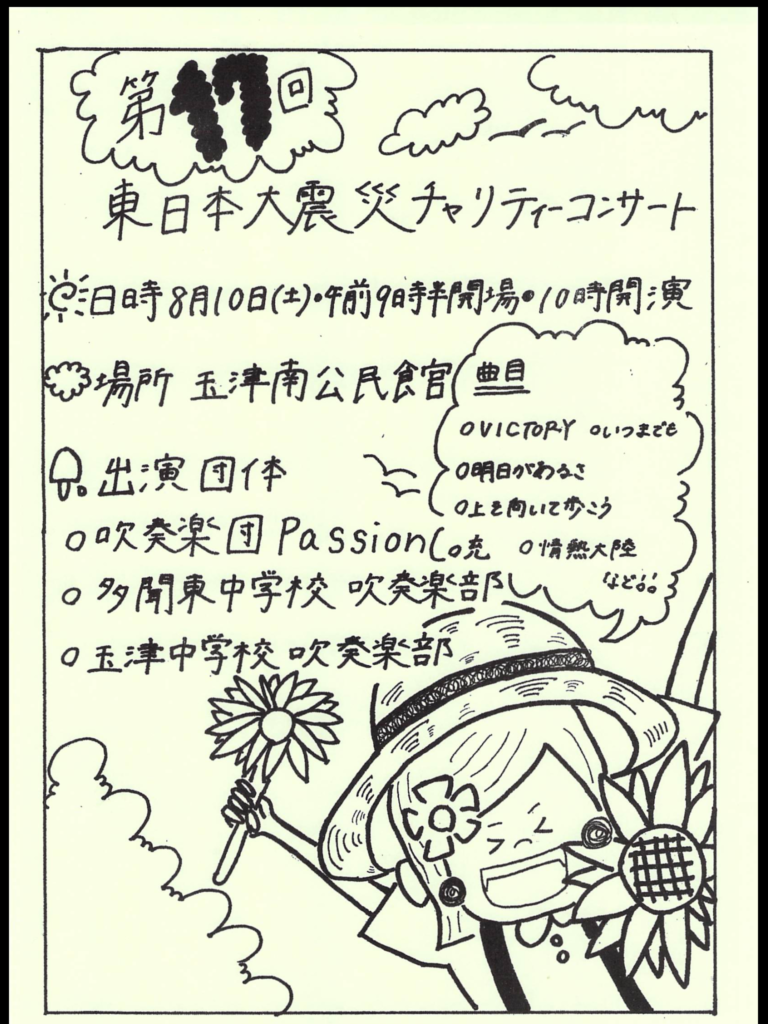 第17回
東日本大震災チャリティーコンサート
日時 8月10日(土)・午前9時半開場・10時開演
場所 玉津南公民館
曲目
○VICTORY ○いつまでも
○明日があるさ
○上を向いて歩こう
○充 ○情熱大陸
など。!
出演団体
○吹奏楽団 Passion
○多聞東中学校 吹奏楽部
○玉津中学校 吹奏楽部